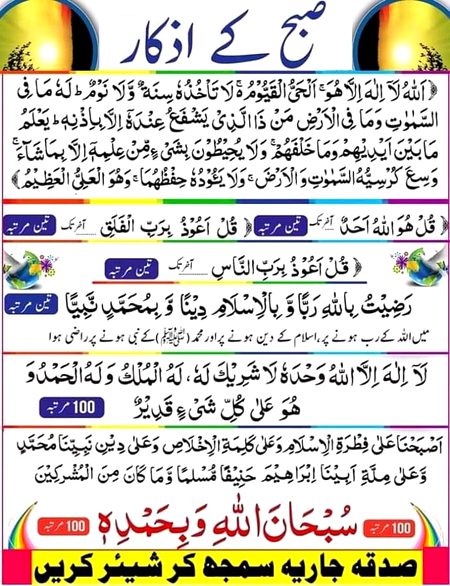 صبح کے اذکار
﴿اَللّٰهُ لَآ اِلٰهَ اِلَّا هُوَ ۚ اَلْحَيُّ الْقَيُّوْمُ ۚ لَا تَاْخُذُهٗ سِنَةٌ وَّلَا نَوْمٌ ؕ لَهٗ مَا فِی
السَّمٰوٰتِ وَمَا فِی الْاَرْضِ مَنْ ذَا الَّذِیْ يَشْفَعُ عِنْدَهٗٓ اِلَّا بِاِذْنِهٖ ؕ يَعْلَمُ
مَا بَيْنَ اَيْدِيْهِمْ وَمَا خَلْفَهُمْ ۚ وَلَا يُحِيْطُوْنَ بِشَیْءٍ مِّنْ عِلْمِهٖٓ اِلَّا بِمَا شَآءَ ۚ
وَسِعَ كُرْسِيُّهُ السَّمٰوٰتِ وَالْاَرْضَ ۚ وَلَا يَـُٔوْدُهٗ حِفْظُهُمَا ۚ وَهُوَ الْعَلِیُّ الْعَظِيْمُ﴾
﴿قُلْ هُوَ اللّٰهُ اَحَدٌ﴾ آخر تک تین مرتبہ ﴿قُلْ اَعُوْذُ بِرَبِّ الْفَلَقِ﴾ آخر تک تین مرتبہ
﴿قُلْ اَعُوْذُ بِرَبِّ النَّاسِ﴾ آخر تک تین مرتبہ
رَضِيْتُ بِاللّٰهِ رَبًّا وَّ بِالْاِسْلَامِ دِيْنًا وَّ بِمُحَمَّدٍ نَّبِيًّا تین مرتبہ
میں اللہ کے رب ہونے پر، اسلام کے دین ہونے پر اور محمد (ﷺ) کے نبی ہونے پر راضی ہوا
لَآ اِلٰهَ اِلَّا اللّٰهُ وَحْدَهٗ لَا شَرِيْكَ لَهٗ، لَهُ الْمُلْكُ وَلَهُ الْحَمْدُ وَ
هُوَ عَلٰی كُلِّ شَیْءٍ قَدِيْرٌ 100 مرتبہ
اَصْبَحْنَا عَلٰی فِطْرَةِ الْاِسْلَامِ وَعَلٰی كَلِمَةِ الْاِخْلَاصِ وَعَلٰی دِيْنِ نَبِيِّنَا مُحَمَّدٍ
وَّعَلٰی مِلَّةِ اَبِيْنَا اِبْرَاهِيْمَ حَنِيْفًا مُّسْلِمًا وَّمَا كَانَ مِنَ الْمُشْرِكِيْنَ
100 مرتبہ سُبْحَانَ اللّٰهِ وَبِحَمْدِهٖ 100 مرتبہ
صدقہ جاریہ سمجھ کر شیئر کریں